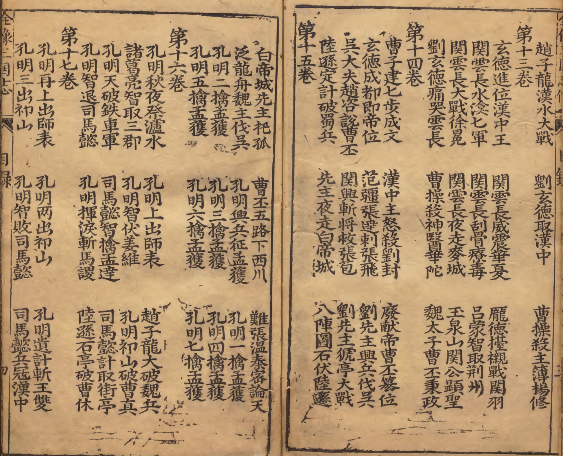 趙子龍漢水大戰 劉玄德取漢中 曹操殺主簿楊修
第十三卷
玄德進位漢中王 関雲長威震華夏 龐德擡櫬戰関羽
関雲長水渰七軍 関雲長刮骨療毒 吕蒙智取荊州
関雲長大戰徐晃 関雲長夜走麥城 玉泉山関公顕聖
劉玄德痛哭雲長 曹操殺神醫華陀 魏太子曹丕秉政
第十四卷
曹子建七步成文 漢中主怒殺劉封 廢献帝曹丕篡位
玄德成都即帝位 范彊張達刺張飛 劉先主興兵伐吳
吳大夫趙咨說曹丕 関興斬將救張包 劉先主猇亭大戰
陸遜定計破蜀兵 先主夜走白帝城 八陣圖石伏陸遜
第十五卷
白帝城先主托孤 曹丕五路下西川 難張溫秦宓論天
泛龍舟魏主伐吳 孔明興兵征孟獲 孔明一擒孟獲
孔明二擒孟獲 孔明三擒孟獲 孔明四擒孟獲
孔明五擒孟獲 孔明六擒孟獲 孔明七擒孟獲
第十六卷
孔明秋夜祭瀘水 孔明上出師表 趙子龍大破魏兵
諸葛亮智取三郡 孔明智伏姜維 孔明祁山破曹真
孔明大破鉄車軍 司馬懿智擒孟達 司馬懿計取街亭
孔明智退司馬懿 孔明揮淚斬馬謖 陸遜石亭破曹休
第十七卷
孔明再上出師表 孔明两出祁山 孔明遺計斬王雙
孔明三出祁山 孔明智敗司馬懿 司馬懿兵寇漢中
全像三国志 目録